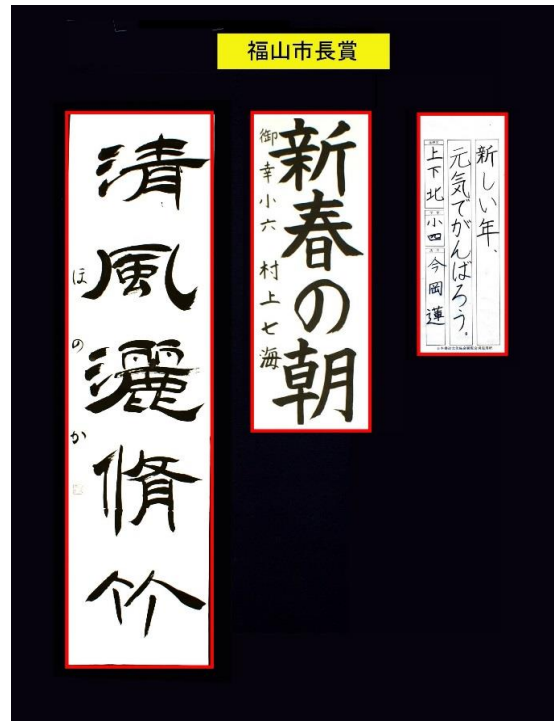 福山市長賞
清風灑脩竹
ほのか
新春の朝
御幸小六 村上七海
新しい年、
元気でがんばろう。
上下北 小四 今岡蓮